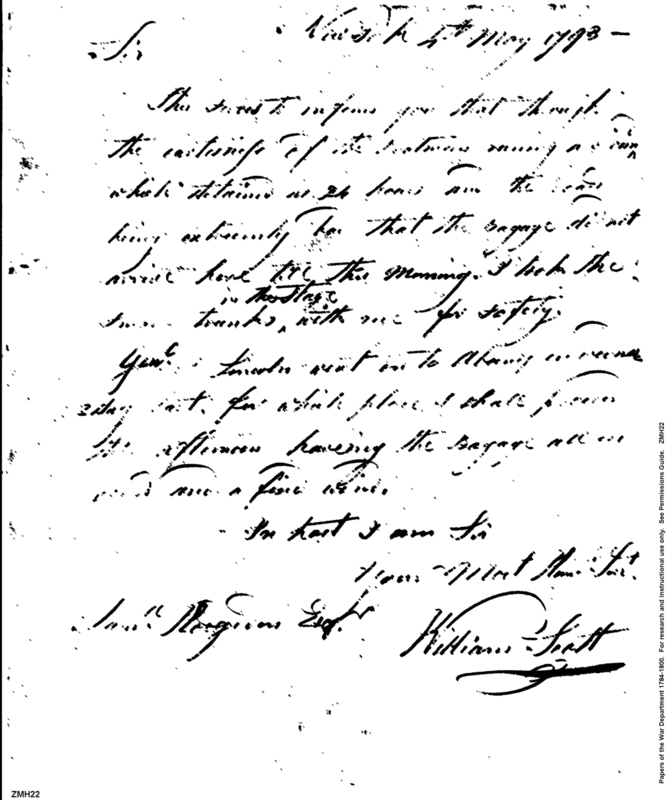 New York 4th May 1793 —
Sir
This serves to inform you that though
the of the
which detained us 24 hours and the roads
being extremely bad that the bagage did not
arrive here till this Morning. I took the
in the Stage
trunks, with me for safety.
Genl. Lincoln went on to Albany on
day last. for which place I shall proceed
this afternoon having the bagage all on
board and a fine wind.
In hast I am Sir
Your Most Hum Sert.
Saml. Hodgdon Esqr.
William Scott
ZMH22
Papers of the War Department 1784-1800. For research and instructional use only. See Permissions Guide. ZMH22